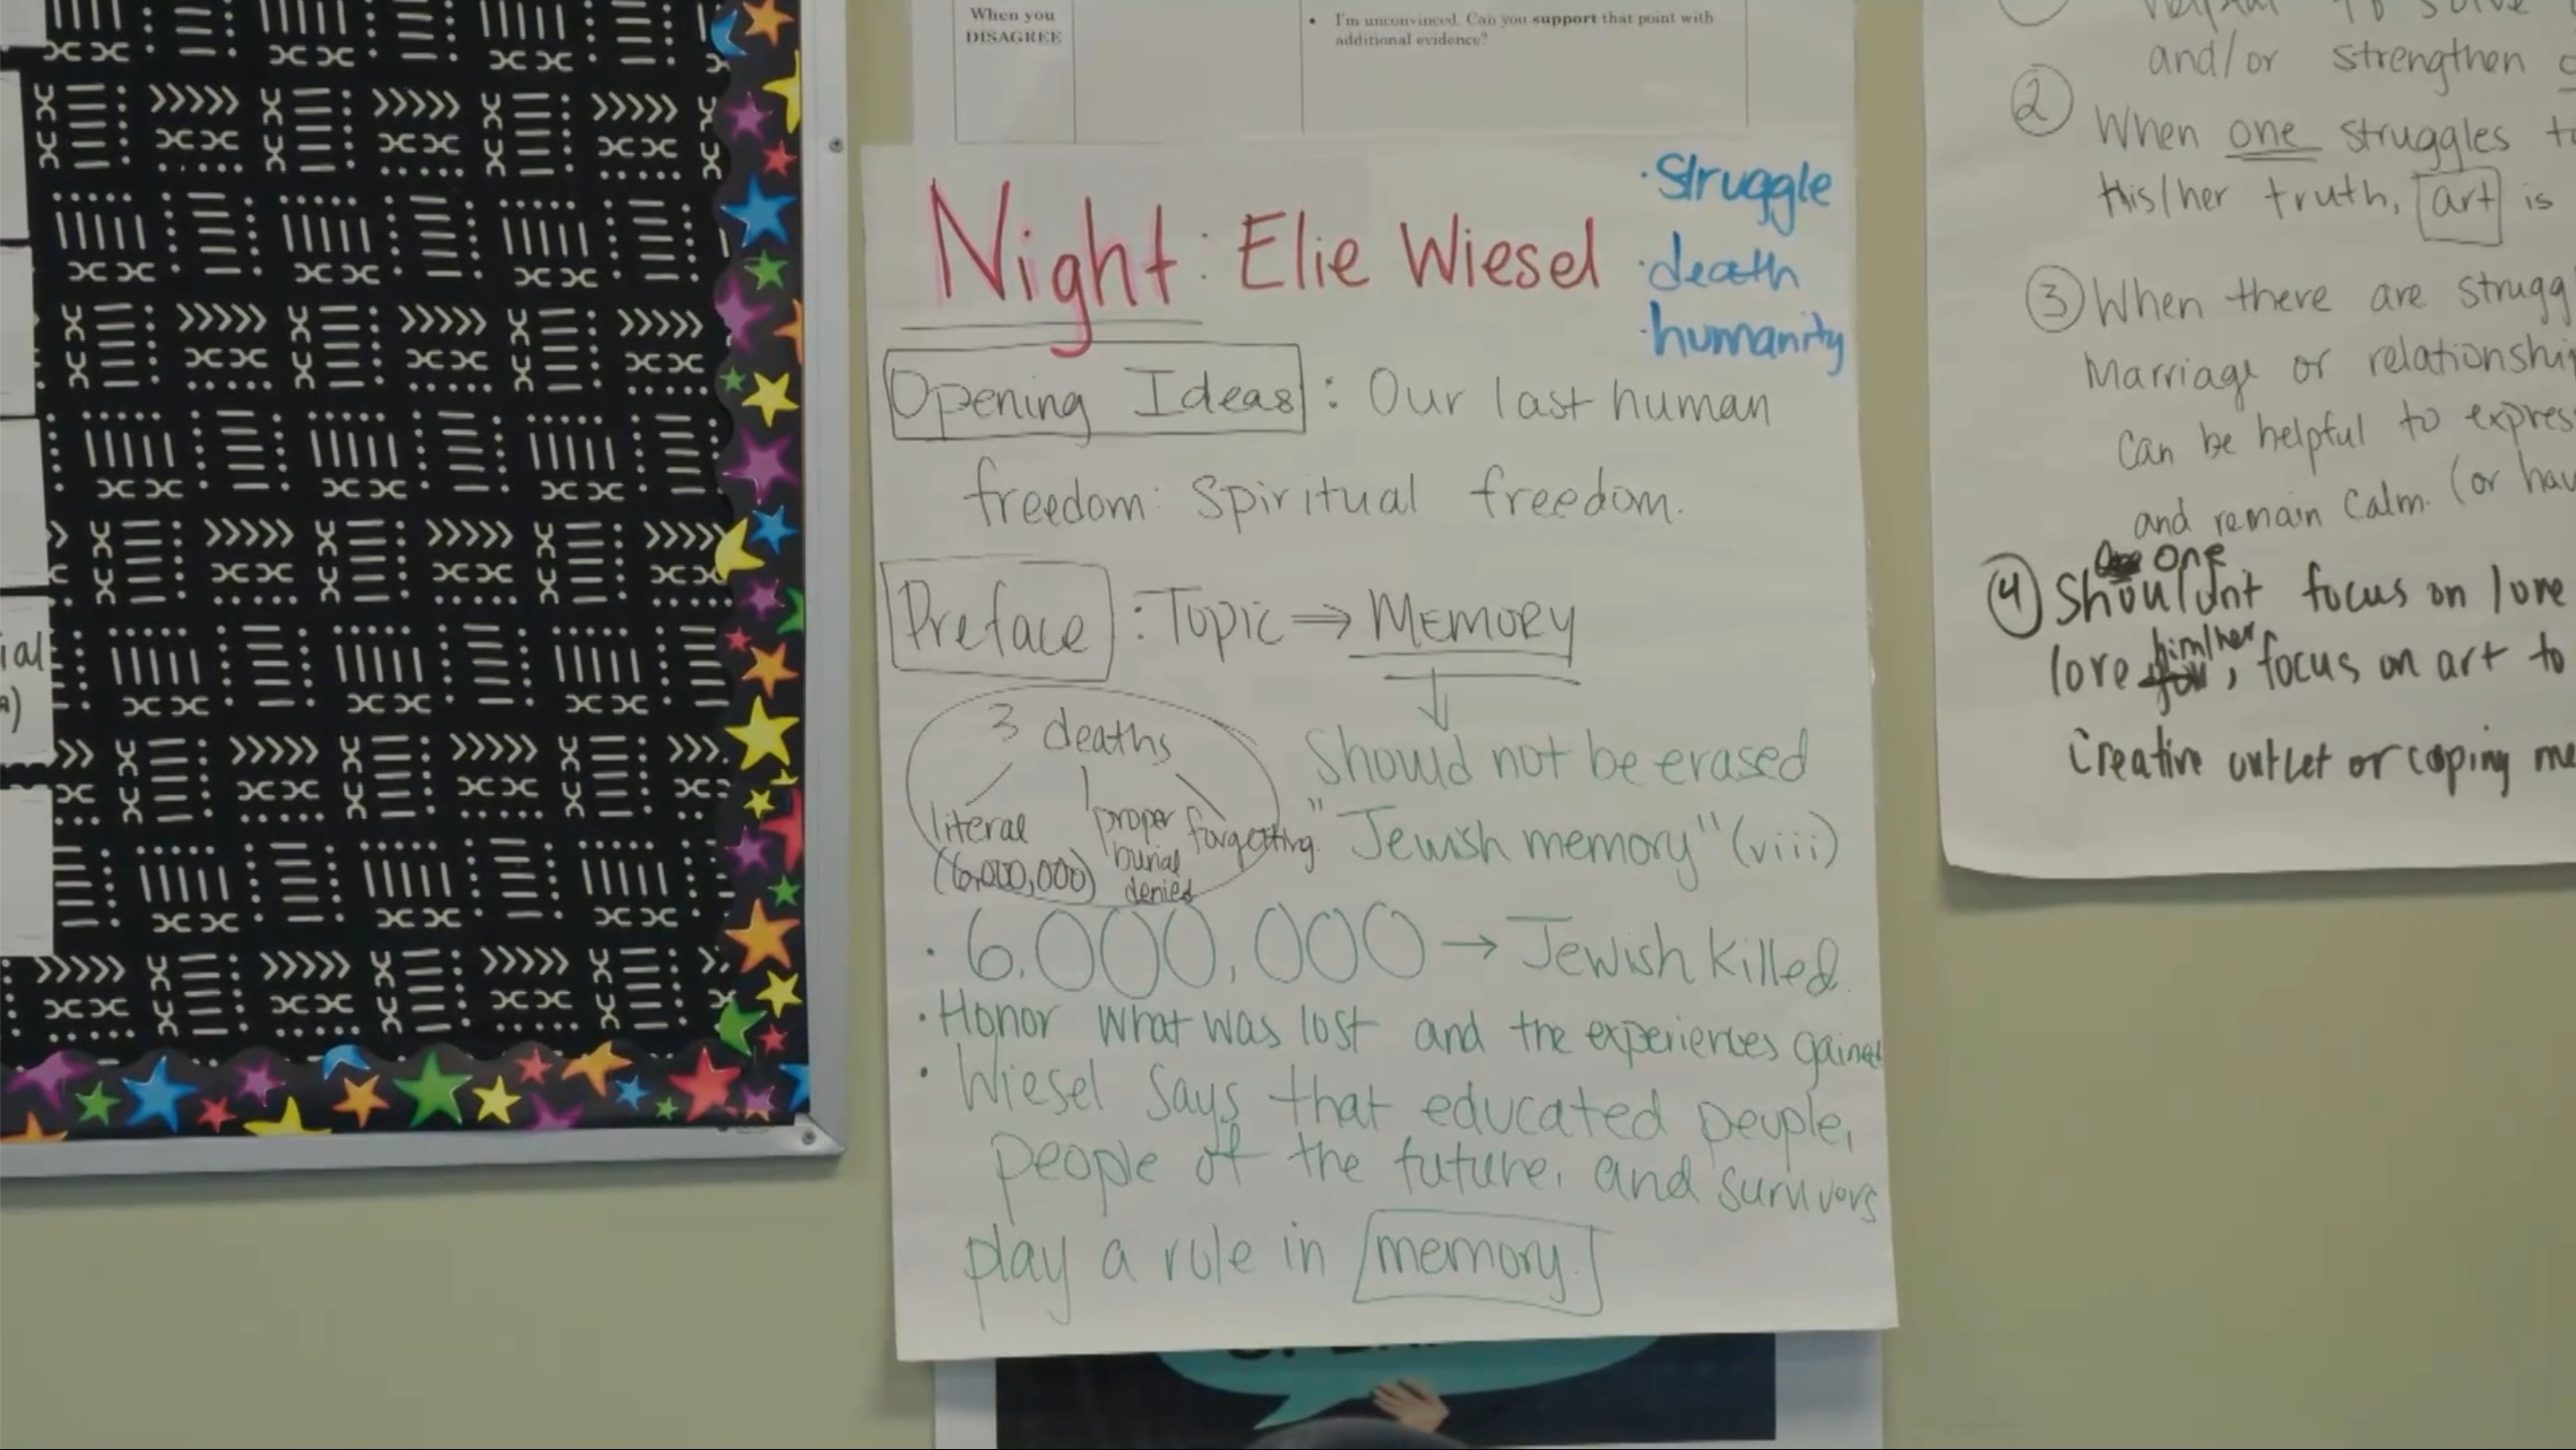 ial
When you
DISAGREE
• I'm unconvinced. Can you support that point with
additional evidence?
Night: Elie Wiesel
· Struggle
· death
· humanity
Opening Ideas : Our last human
freedom: Spiritual freedom.
Preface : Topic ⇒ MEMORY
3 deaths
literal
(6,000,000)
proper
burial
denied
forgetting
Should not be erased
"Jewish memory" (viii)
· 6,000,000 → Jewish killed.
· Honor what was lost and the experiences gained
· Wiesel says that educated people,
people of the future, and survivors
play a role in memory.
and/or strengthen
② When one struggles
his/her truth, art is
③ When there are
Marriage or
can be helpful to
and remain calm. (or
one
④ Shouldnt focus on love
him/her
love , focus on art to
Creative outlet or coping